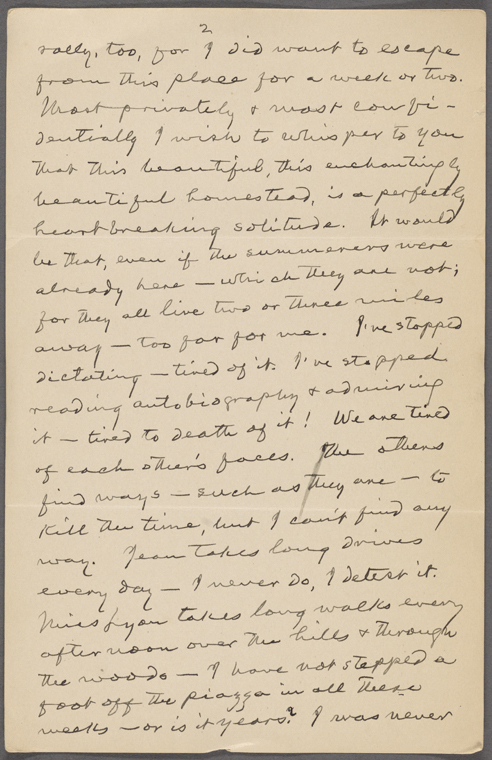 2
rally, too, for I did want to escape
from this place for a week or two.
Most privately & most confi-
dentially I wish to whisper to you
that this beautiful, this enchantingly
beautiful homestead, is a perfectly
heart-breaking solitude. It would
be that, even if the summerers were
already here — which they are not;
for they all live two or three miles
away — too far for me. I've stopped
dictating — tired of it. I've stopped
reading autobiography & admiring
it — tired to death of it! We are tired
of each other's faces. The others
find ways — such as they are — to
kill the time, but I can't find any
way. Jean takes long drives
every day — I never do, I detest it.
Miss Lyon takes long walks every
afternoon over the hills & through
the woods — I have not stepped a
foot off the piazza in all these
weeks — or is it years? I was never